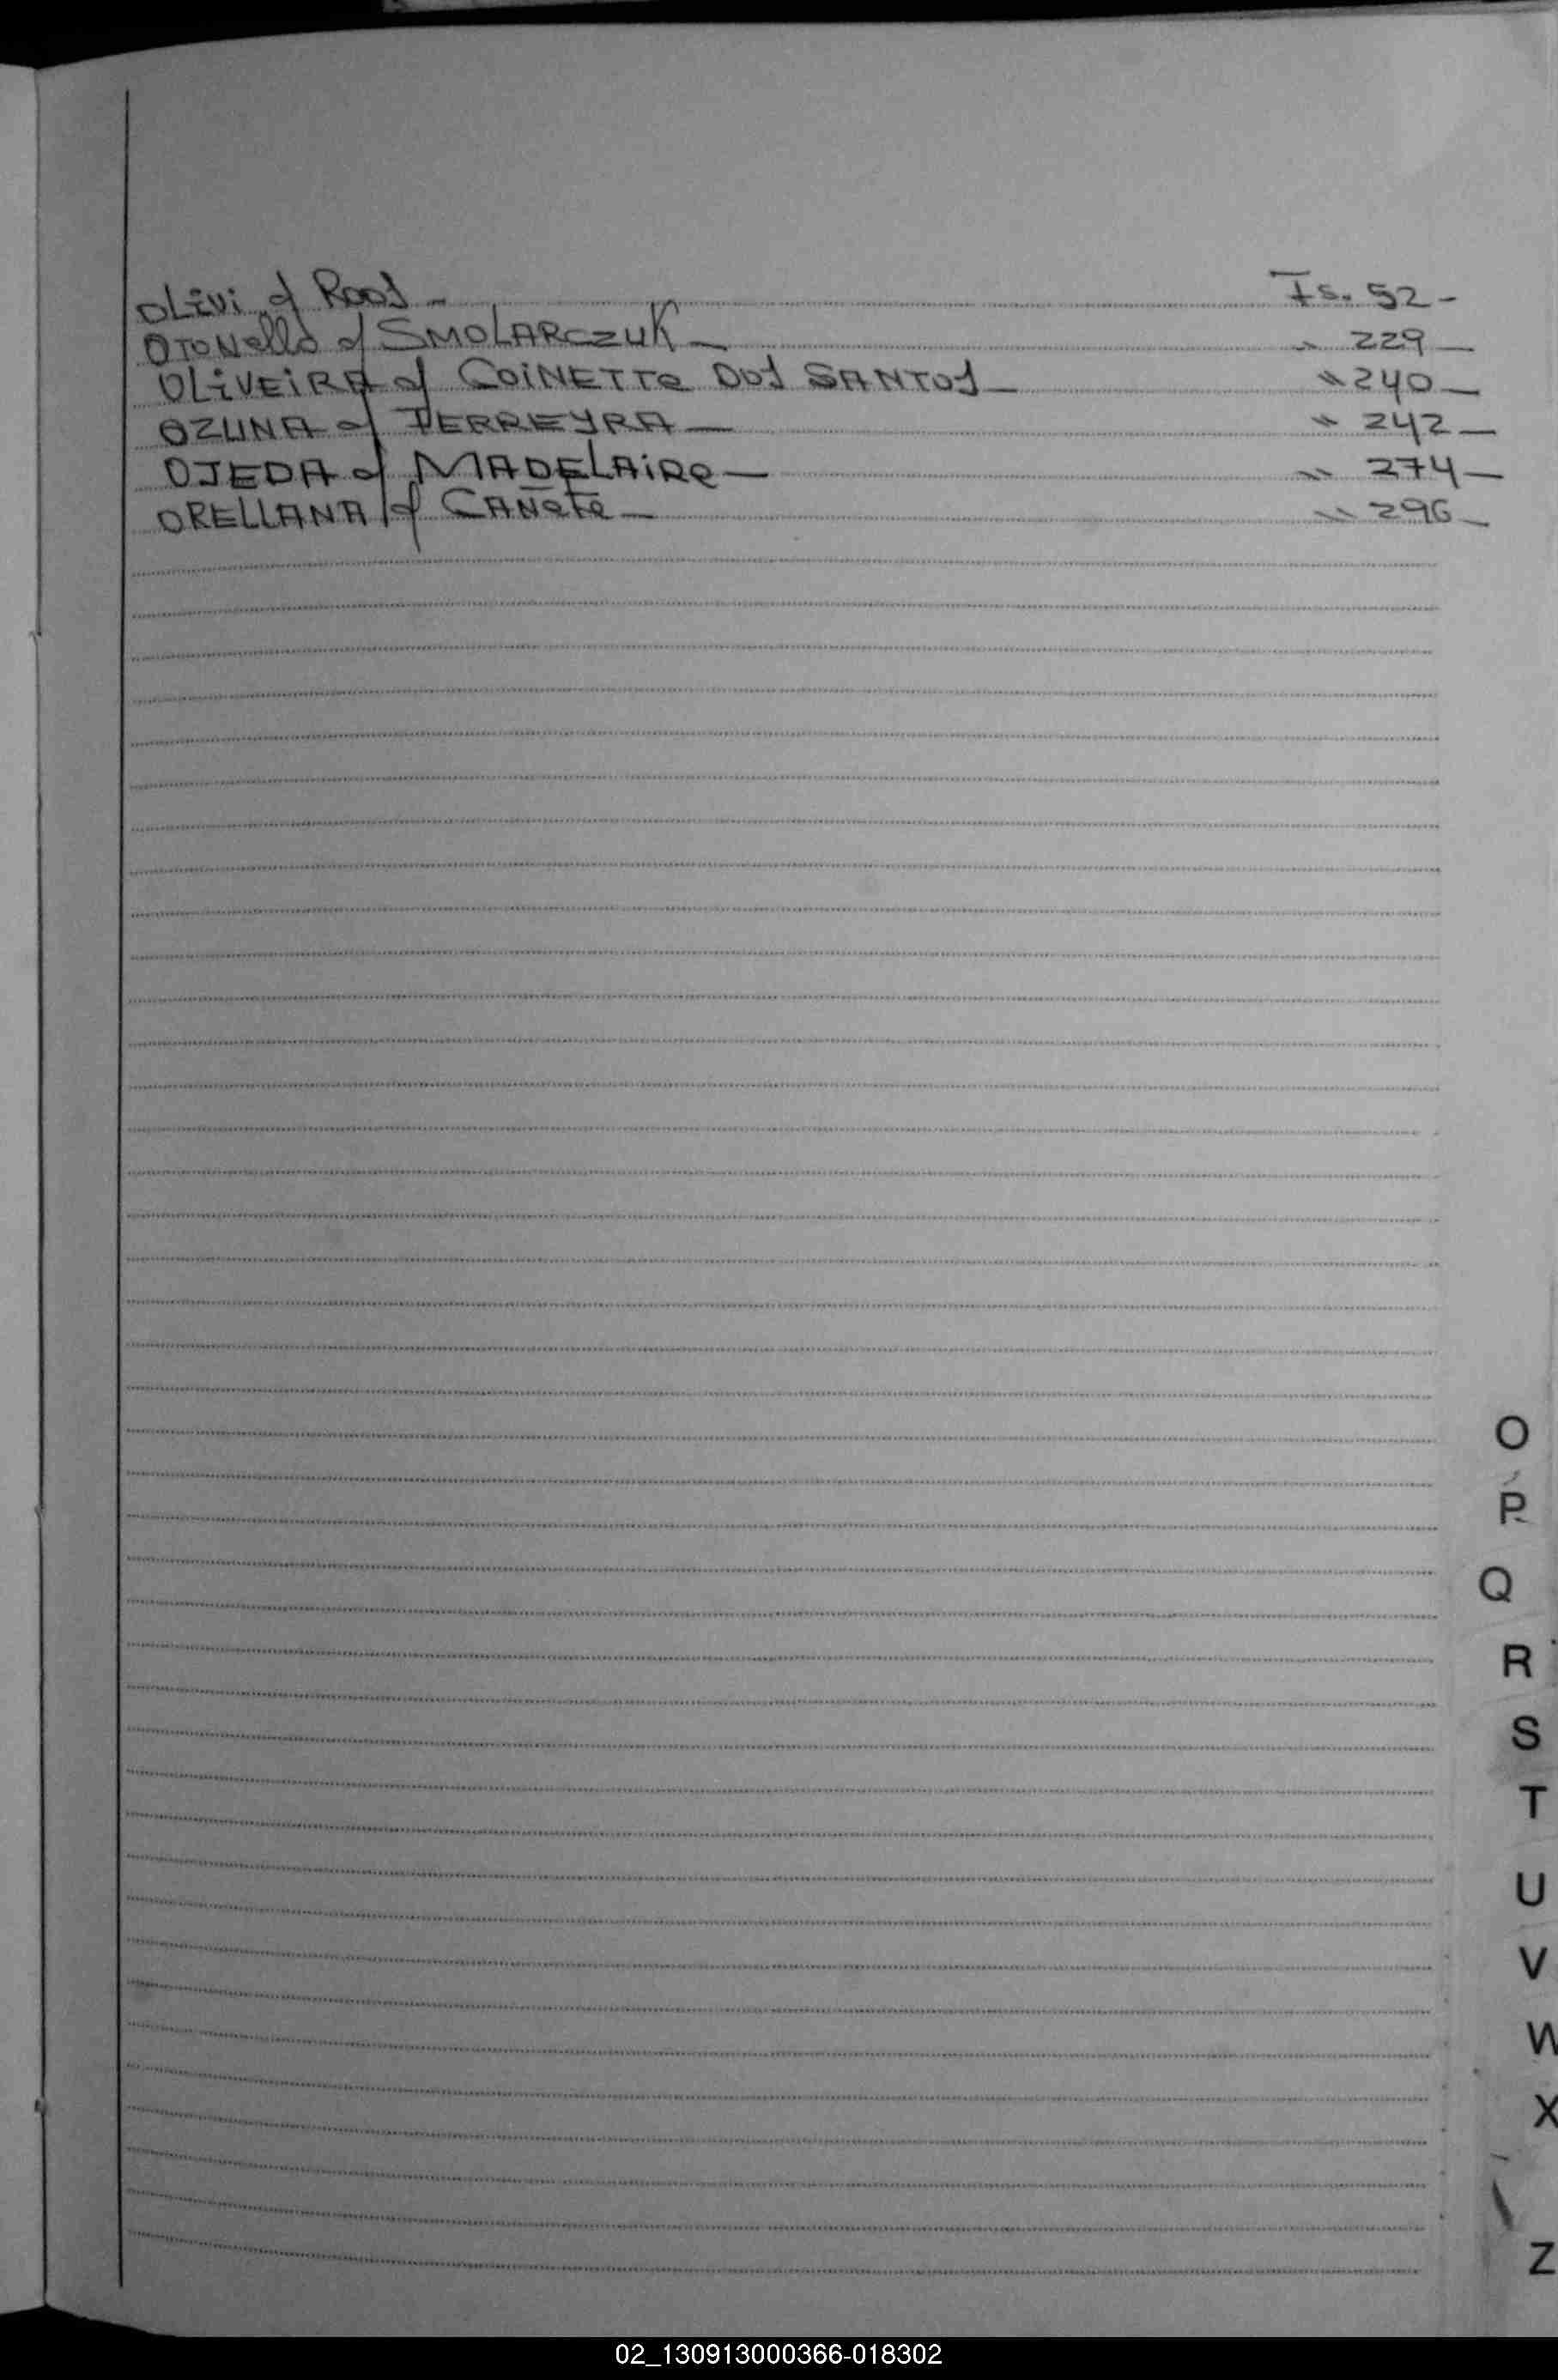 OLivi c/ Roos - Fs. 52 -
OTONello c/ SMOLARCZUK - " 229 -
OLiVEiRA c/ COiNETTe DOS SANTOS - " 240 -
OZUNA c/ FERREYRA - " 242 -
OJEDA c/ MADELAiRe - " 274 -
ORELLANA c/ CAÑeTe - " 296 -
O
P
Q
R
S
T
U
V
W
X
Z
02_130913000366-018302